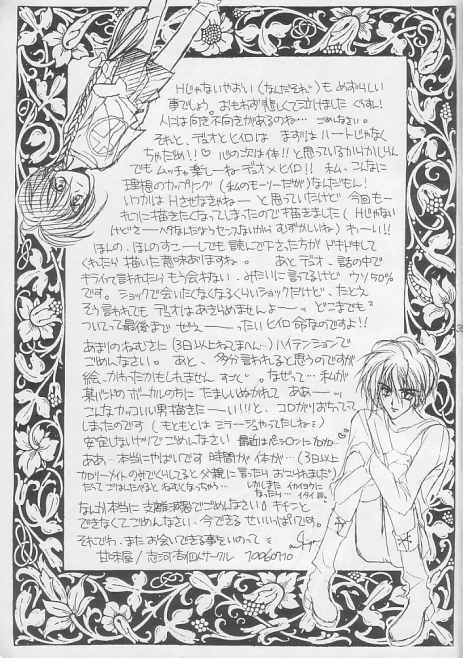 Hじゃないやおい(なんだそれ)も めずらしい
事でしょう。おもわず悲しくて泣けました くすん!
人には向き不向きがあるのね… ごめんなさい。
それと、デュオとヒイロは まずはハートじゃなく
ちゃだめ!!♡ 心の次は体!! と思っている
でも デュオ×ヒイロ!! 私、こんなに
理想のカップリング(私のモーソーだが)なんだもん!
いつかは Hさせなきゃねー と思っていたけど 今回も
れに描きたくなってしまったので描きました (Hじゃない
けどさー なんだようセンスないから むずかしいね) わーい!!
ほんの、ほんのすこーしでも 読んで下さった方が ドキドキして
くれたら 描いた意味ありますね。 あと デュオ、話の中で
キライって言われたら もう会わない、みたいに言ってるけど ウソ50%
です。ショックで会いたくなくなるくらいショックだけど、たとえ
そう言われても デュオはあきらめませんよー どこまでも
ついてって最後まで ぜえーったい ヒイロ命なのですよ!!
あまりのねむさに (3日以上ねてません) ハイテンションで
ごめんなさい。 あと、多分言われると思うのですが
絵、かわったかもしれません すーごく。なぜって…私が
某バンドの ボーカルのちに たましいぬかれて ああー
こんなカッコいい男描きたーい!!!と、コロがりおちてって
しまったのです (もともとは ミラージュやってたしねー)
安定しないヤツで ごめんなさい 最近は
ああ、本当にやばいです 時間が 体が… (3日以上
カロリーメイトのみでくらしてると 父親に言ったら おこられました)
だって ごはんたべると ねむくなっちゃう… しかしまた
なったり… イタイ
なんか本当に 支離滅裂でごめんなさい! キチンと
できなくてごめんなさい、今できる せいいっぱいです。
それでは、また お会いできる事をいのって
甘味屋/志河 個人サークル